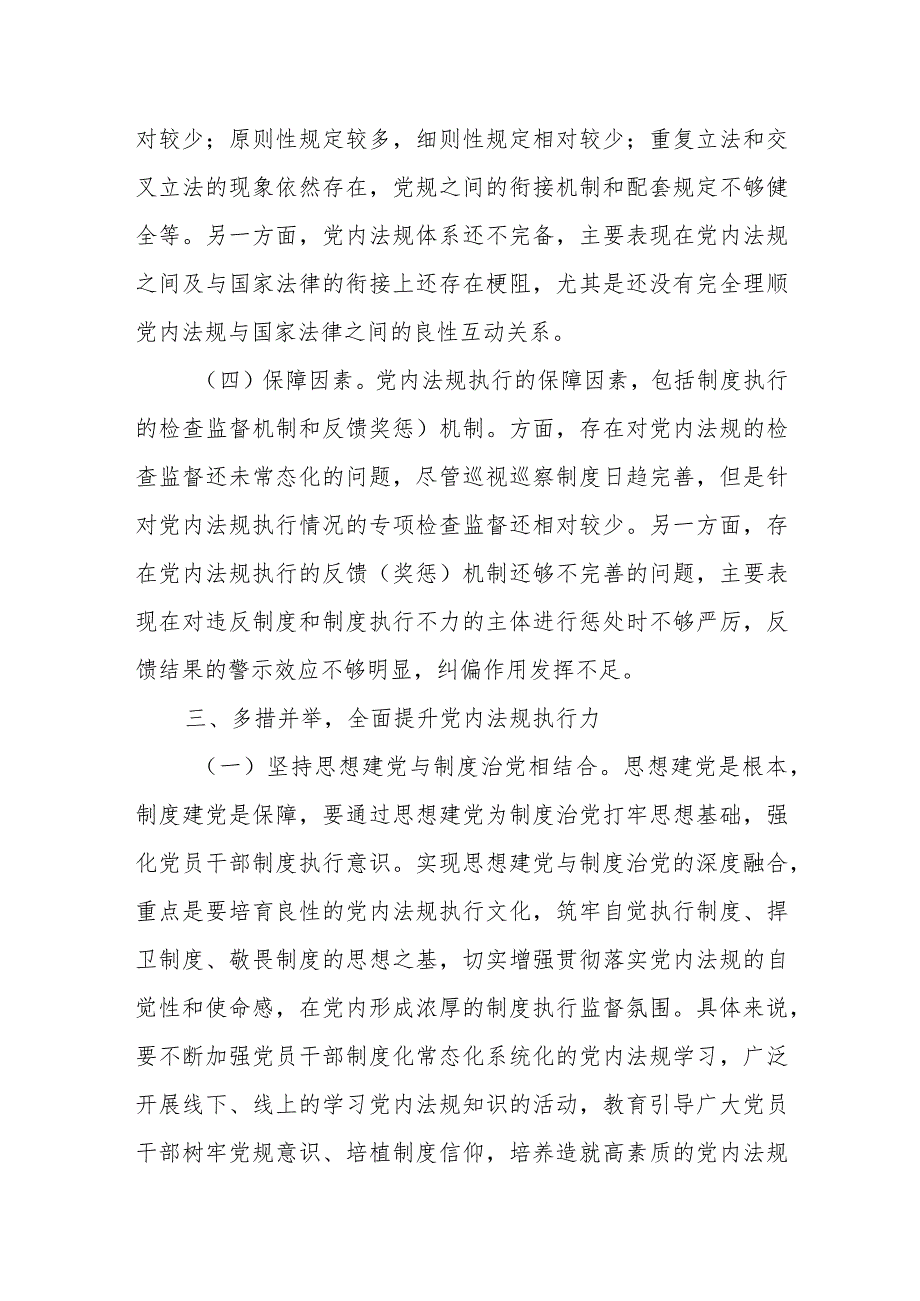 对较少；原则性规定较多，细则性规定相对较少；重复立法和交
叉立法的现象依然存在，党规之间的衔接机制和配套规定不够健
全等。另一方面，党内法规体系还不完备，主要表现在党内法规
之间及与国家法律的衔接上还存在梗阻，尤其是还没有完全理顺
党内法规与国家法律之间的良性互动关系。
（四）保障因素。党内法规执行的保障因素，包括制度执行
的检查监督机制和反馈奖惩）机制。方面，存在对党内法规的检
查监督还未常态化的问题，尽管巡视巡察制度日趋完善，但是针
对党内法规执行情况的专项检查监督还相对较少。另一方面，存
在党内法规执行的反馈（奖惩）机制还够不完善的问题，主要表
现在对违反制度和制度执行不力的主体进行惩处时不够严厉，反
馈结果的警示效应不够明显，纠偏作用发挥不足。
三、多措并举，全面提升党内法规执行力
（一）坚持思想建党与制度治党相结合。思想建党是根本，
制度建党是保障，要通过思想建党为制度治党打牢思想基础，强
化党员干部制度执行意识。实现思想建党与制度治党的深度融合，
重点是要培育良性的党内法规执行文化，筑牢自觉执行制度、捍
卫制度、敬畏制度的思想之基，切实增强贯彻落实党内法规的自
觉性和使命感，在党内形成浓厚的制度执行监督氛围。具体来说，
要不断加强党员干部制度化常态化系统化的党内法规学习，广泛
开展线下、线上的学习党内法规知识的活动，教育引导广大党员
干部树牢党规意识、培植制度信仰，培养造就高素质的党内法规